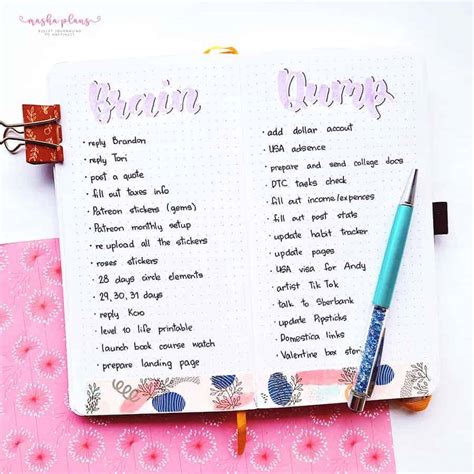 masha plans
BULLET JOURNALING
TO HAPPINESS
Brain
• reply Brandon
• reply Tori
• post a quote
• fill out taxes info
• Patreon stickers (gems)
• Patreon monthly setup
• re upload all the stickers
• roses stickers
• 28 days circle elements
• 29, 30, 31 days
• reply Koo
• level 10 life printable
• launch book course watch
• prepare landing page
Dump
• add dollar accout
• USA adsence
• prepare and send college docs
• DTC tasks check
• fill out income/expences
• fill out post stats
• update habit tracker
• update pages
• USA visa for Andy
• artist Tik Tok
• talk to Sberbank
• update Pipsticks
• Domestica links
• Valentine box story